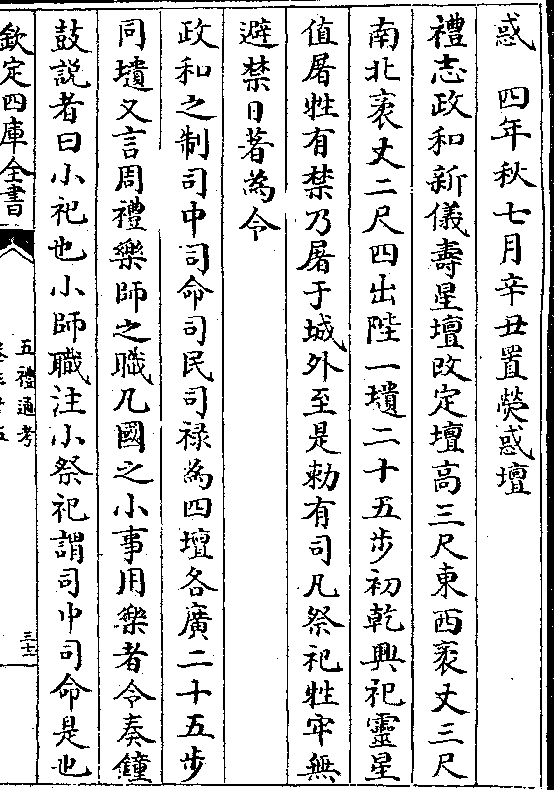 惑　四年秋七月辛丑置熒惑壇
禮志政和新儀壽星壇改定壇高三尺東西袤丈三尺
南北袤丈二尺四出陛一壝二十五步初乾興祀靈星
值屠牲有禁乃屠于城外至是勅有司凡祭祀牲牢無
避禁日著為令
政和之制司中司命司民司祿為四壇各廣二十五步
同壝又言周禮樂師之職凡國之小事用樂者令奏鐘
鼓說者曰小祀也小師職注小祭祀謂司中司命是也
欽定四庫全書
五禮通考